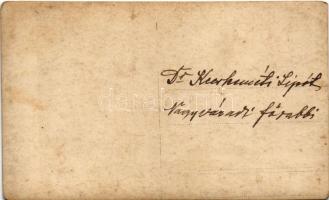 Dr Kecskeméti Lipót
Nagyváradi főrabbi